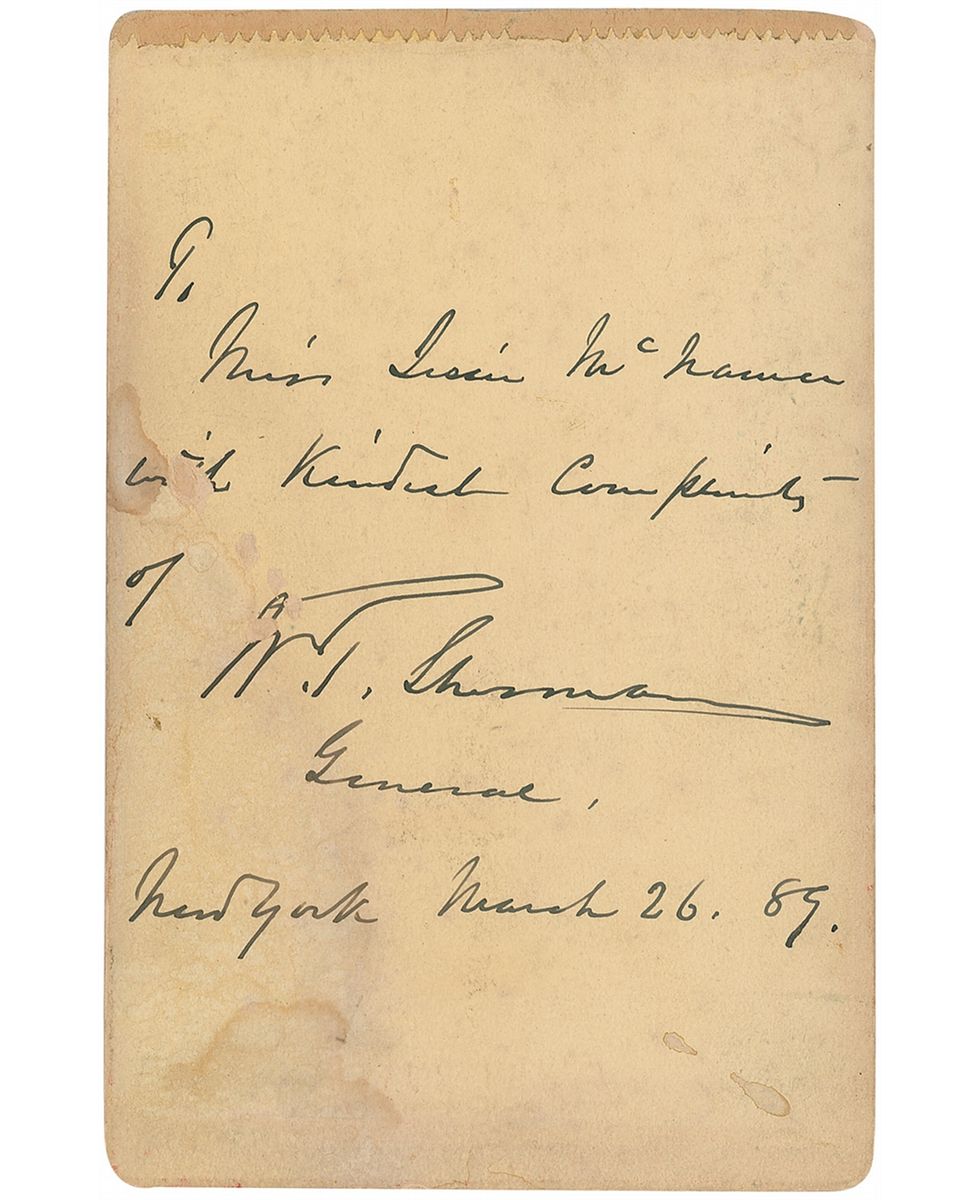 To
Miss Lizzie McNamee
with Kindest Compliments
of
W.T. Sherman
General,
New York March 26. 89.